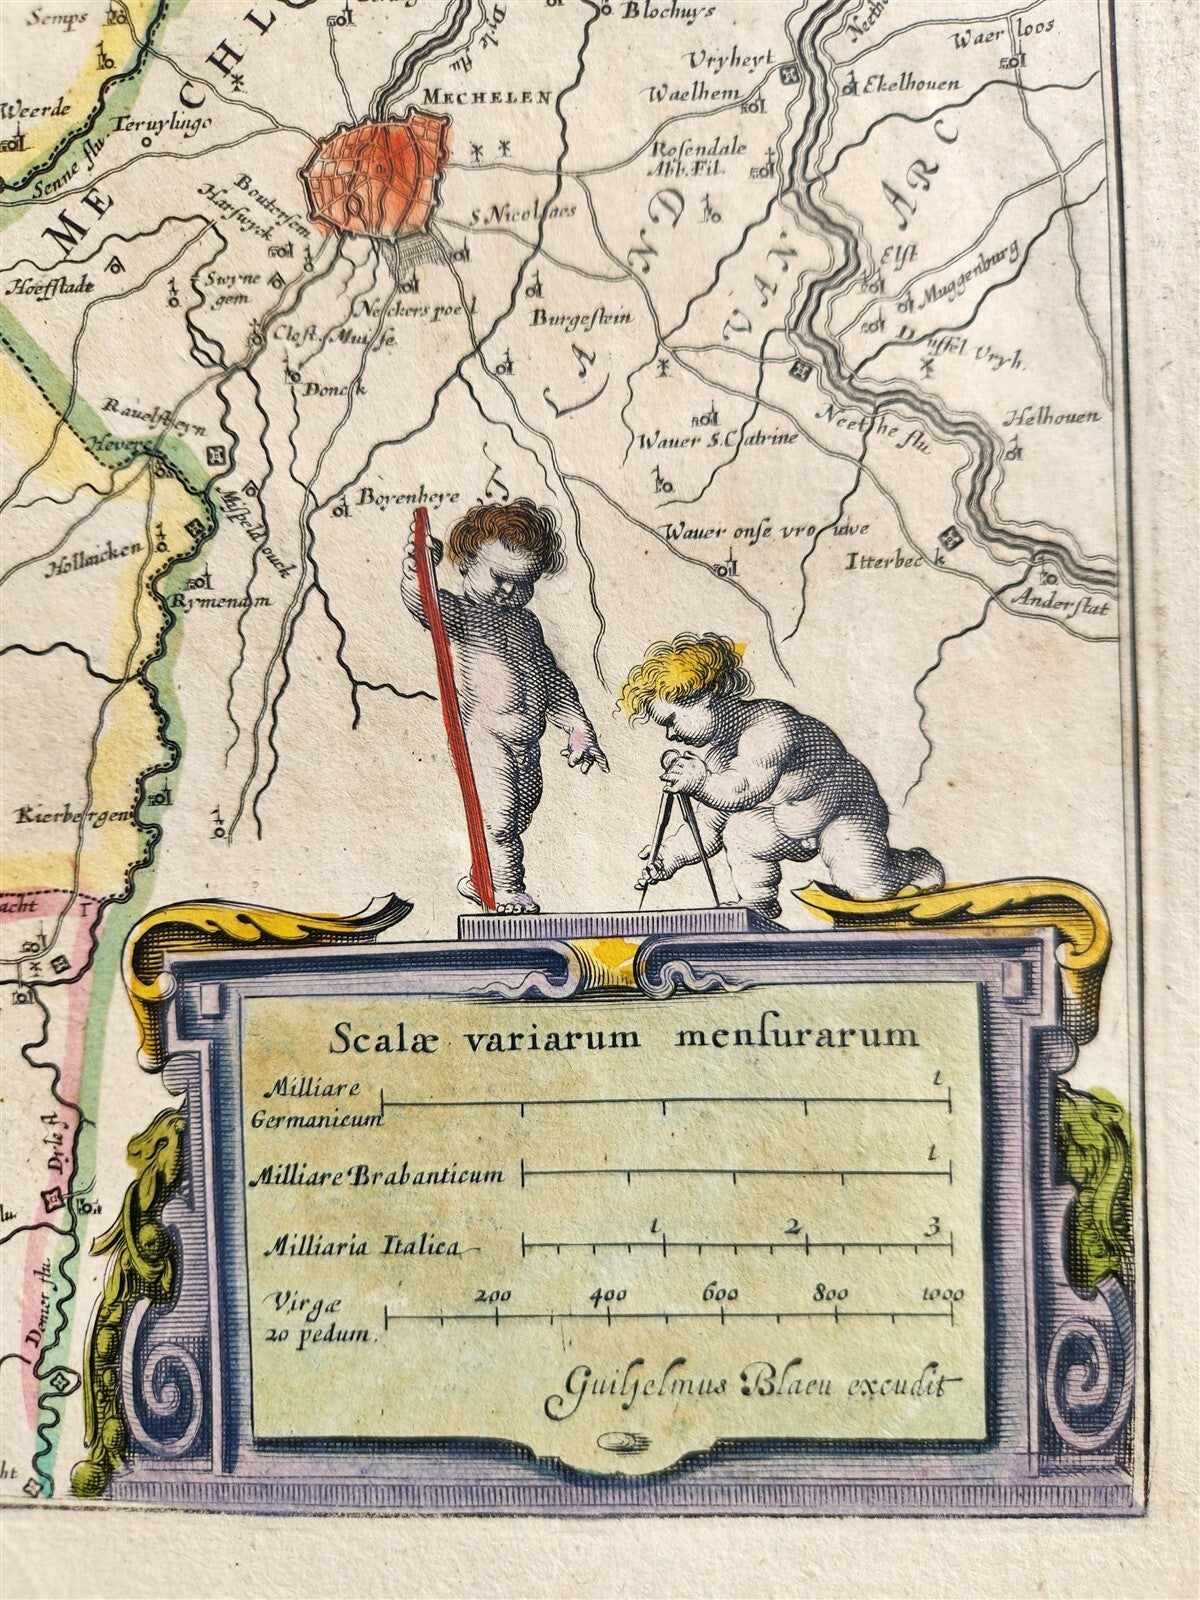 Semps
Blochuys
Dyle flu
Waer loos
Vryheyt
Waelhem
Ekelhouen
MECHELEN
Weerde
Teruylingo
Senne flu
MECHL
Rosendale
Abb. Fil.
LAND VAN ARC
Boutersem
Harswyck
S. Nicolaes
Hoefstade
Swyne
gem
Elst
Muggenburg
Neckers poel
Burgestein
Clost. Muisse
Duffel Vryh.
Donck
Ravelsteyn
Hevere
Neethe flu
Helhouen
Wauer S. Catrine
Boyenheye
Muspeldonck
Wauer onse vrouwe
Itterbeck
Hollaicken
Rymenam
Anderstat
Kierbergen
acht
Dyle fl
Demer flu.
ht
Scalæ variarum menſurarum
Milliare
Germanicum
1
Milliare Brabanticum
1
Milliaria Italica
1 2 3
Virgæ
20 pedum.
200 400 600 800 1000
Guiljelmus Blaeu excudit